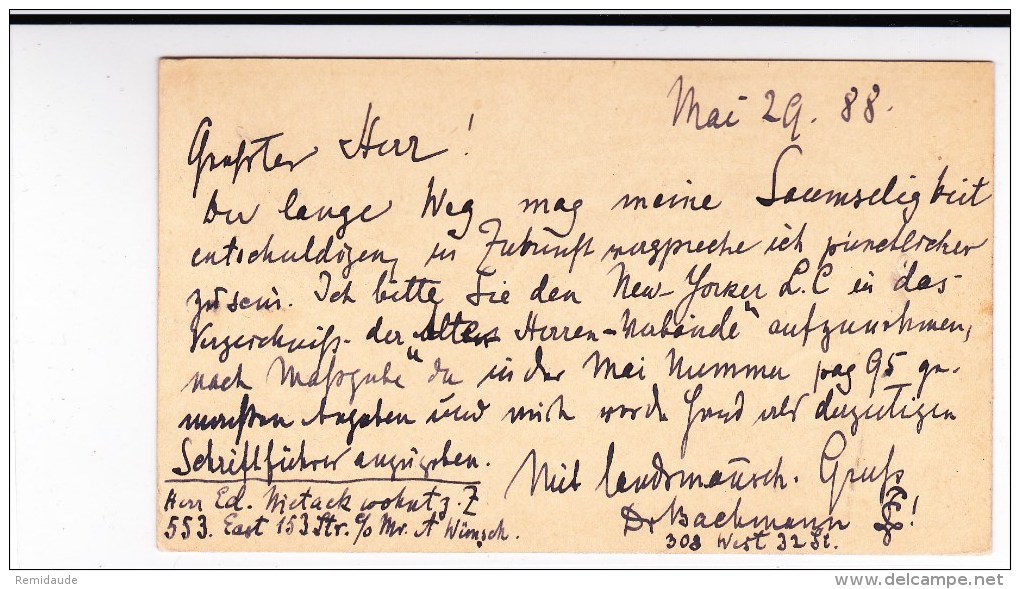 Mai 29. 88.
Geehrter Herr!
Der lange Weg mag meine Saumseligkeit
entschuldigen, in Zukunft verspreche ich pünctlicher
zu sein. Ich bitte Sie den New-Yorker L.C in das
Verzeichniß der „alten Herren-Verbände" aufzunehmen,
nach Maßgabe der in der Mai Nummer pag 95 ge-
machten Angaben und mich als derzeitigen
Schriftführer anzugeben.
Mit landsmännsch. Gruß
Herr Ed. Nietack wohnt z. Z
Dr Bachmann !
553. East 153 Str. c/o Mr. A Wünsch.
303 West 32 St.
Remidaude
delcampe.net